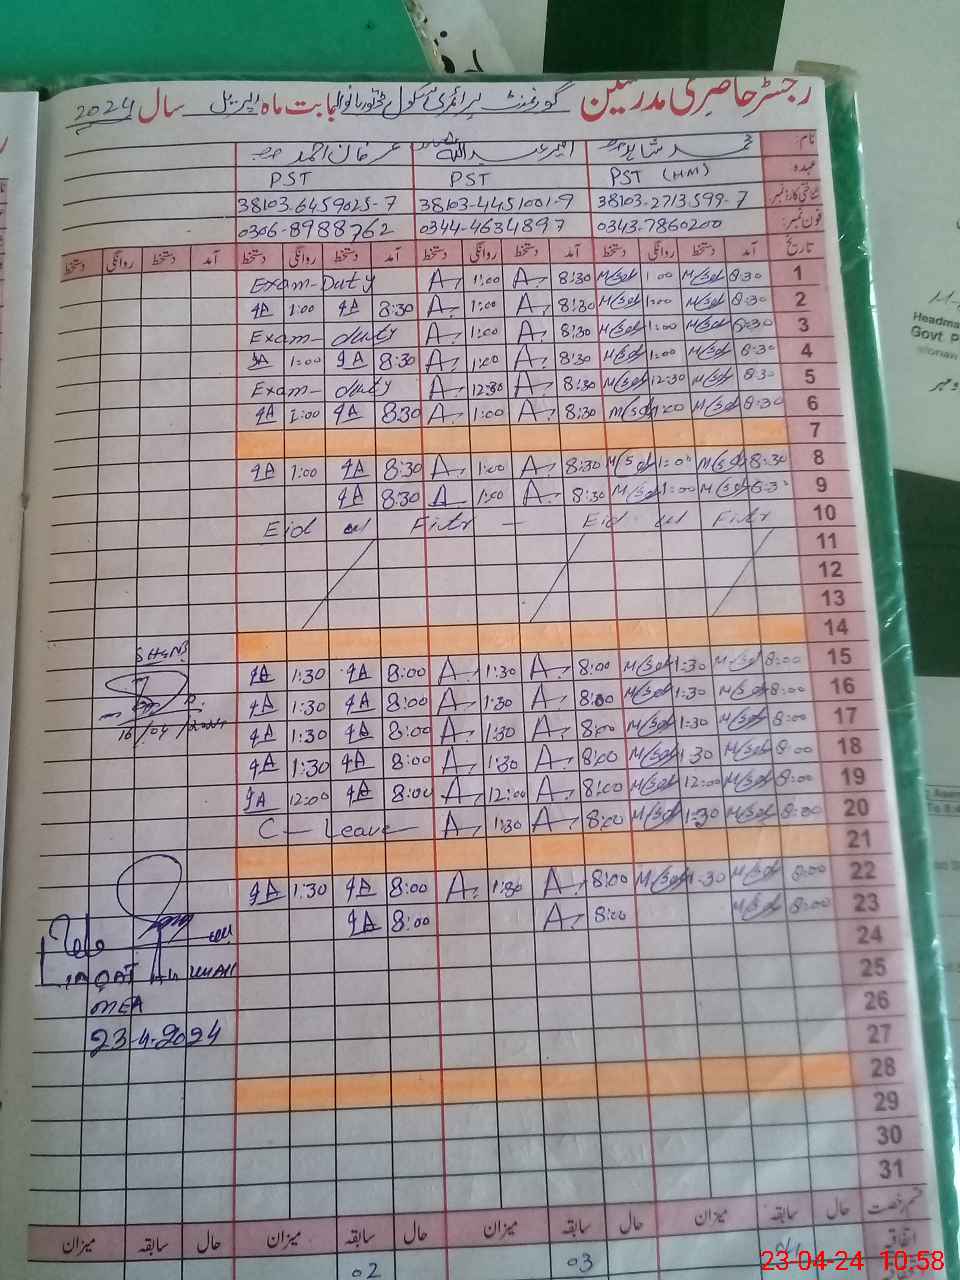 رجسٹر حاضری مدرسین گورنمنٹ پرائمری سکول بابت ماہ اپریل سال 2024
نام محمد شاہد امیر عبداللہ عرفان احمد
عہدہ PST (HM) PST PST
شناختی کارڈ نمبر 38103-2713599-7 38103-4451001-9 38103-6459025-7
فون نمبر 0343-7860200 0344-4634897 0306-8988762
تاریخ آمد دستخط روانگی دستخط آمد دستخط روانگی دستخط آمد دستخط روانگی دستخط آمد دستخط روانگی دستخط
Exam-Duty A 1:00 A 8:30 M/Sd 1:00 M/Sd 8:30 1
qA 1:00 qA 8:30 A 1:00 A 8:30 M/Sd 1:00 M/Sd 8:30 2
Exam-duty A 1:00 A 8:30 M/Sd 1:00 M/Sd 8:30 3
qA 1:00 qA 8:30 A 1:00 A 8:30 M/Sd 1:00 M/Sd 8:30 4
Exam-duty A 12:30 A 8:30 M/Sd 12:30 M/Sd 8:30 5
qA 1:00 qA 8:30 A 1:00 A 8:30 M/Sd 1:00 M/Sd 8:30 6
7
qA 1:00 qA 8:30 A 1:00 A 8:30 M/Sd 1:00 M/Sd 8:30 8
qA 8:30 A 1:00 A 8:30 M/Sd 1:00 M/Sd 8:30 9
Eid ul Fitr - Eid ul Fitr 10
11
12
13
14
qA 1:30 qA 8:00 A 1:30 A 8:00 M/Sd 1:30 M/Sd 8:00 15
qA 1:30 qA 8:00 A 1:30 A 8:00 M/Sd 1:30 M/Sd 8:00 16
16/04/2024
qA 1:30 qA 8:00 A 1:30 A 8:00 M/Sd 1:30 M/Sd 8:00 17
qA 1:30 qA 8:00 A 1:30 A 8:00 M/Sd 1:30 M/Sd 8:00 18
qA 12:00 qA 8:00 A 12:00 A 8:00 M/Sd 12:00 M/Sd 8:00 19
C-Leave A 1:30 A 8:00 M/Sd 1:30 M/Sd 8:00 20
21
qA 1:30 qA 8:00 A 1:30 A 8:00 M/Sd 1:30 M/Sd 8:00 22
qA 8:00 A 8:00 M/Sd 8:00 23
24
25
MEA
26
23-4-2024
27
28
29
30
31
قسم رخصت حال سابقہ میزان حال سابقہ میزان حال سابقہ میزان حال سابقہ میزان
اتفاقیہ 03 02
Headma
Govt. P
23-04-24 10:58